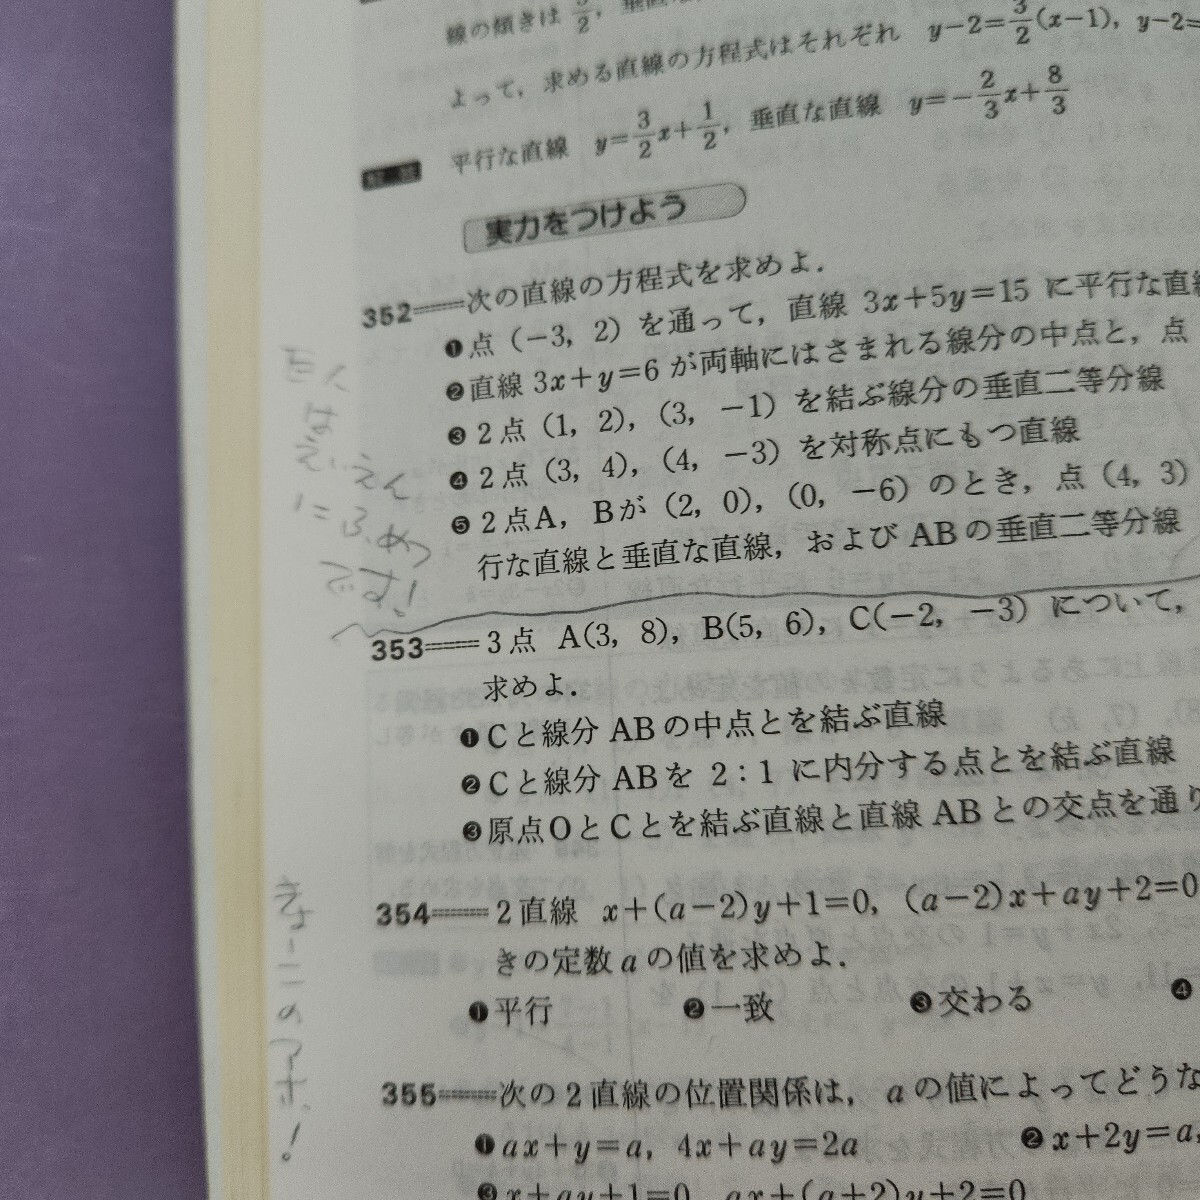 線の傾きは 3/2,
よって，求める直線の方程式はそれぞれ y−2=3/2(x−1), y−2=
解答 平行な直線 y=3/2x+1/2, 垂直な直線 y=−2/3x+8/3
実力をつけよう
352 次の直線の方程式を求めよ．
❶ 点（−3, 2）を通って，直線 3x+5y=15 に平行な直線
❷ 直線 3x+y=6 が両軸にはさまれる線分の中点と，点
❸ 2点（1, 2），（3, −1）を結ぶ線分の垂直二等分線
❹ 2点（3, 4），（4, −3）を対称点にもつ直線
❺ 2点A，Bが（2, 0），（0, −6）のとき，点（4, 3）
行な直線と垂直な直線，および AB の垂直二等分線
巨人
は
えいえん
にふめつ
です!
353 3点 A(3, 8)，B(5, 6)，C(−2, −3) について，
求めよ．
❶ Cと線分 AB の中点とを結ぶ直線
❷ Cと線分 AB を 2：1 に内分する点とを結ぶ直線
❸ 原点OとCとを結ぶ直線と直線 AB との交点を通り
354 2直線 x+(a−2)y+1=0, (a−2)x+ay+2=0
きの定数 a の値を求めよ．
❶ 平行 ❷ 一致 ❸ 交わる ❹
355 次の2直線の位置関係は，a の値によってどうな
❶ ax+y=a, 4x+ay=2a ❷ x+2y=a,
❸ x+ay+1=0, ax+(a+2)y+2=0